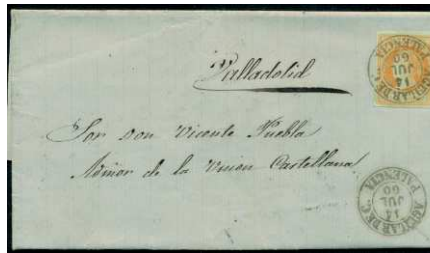 Valladolid
Sor don Vicente Puebla
Admor de la Union Castellana
AGUILAR DE C.
14
JUL
60
PALENCIA
AGUILAR DE C.
14
JUL
60
PALENCIA